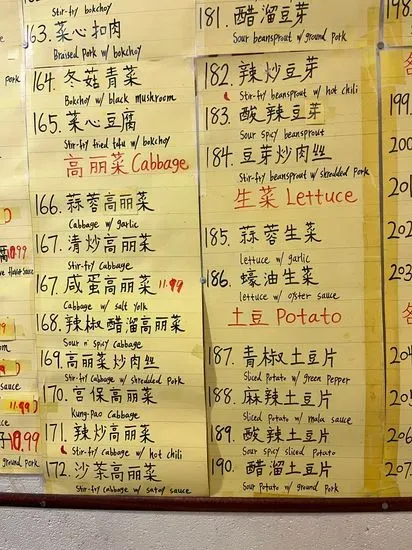 Stir-fry w/ bokchoy
163. 菜心扣肉
Braised Pork w/ bokchoy
164. 冬菇青菜
Bokchoy w/ black mushroom
165. 菜心豆腐
Stir-fry fried tofu w/ bokchoy
高丽菜 Cabbage
166. 蒜蓉高丽菜
Cabbage w/ garlic
167. 清炒高丽菜
Stir-fry Cabbage
167. 咸蛋高丽菜 11.99
Cabbage w/ salt yolk
168. 辣椒醋溜高丽菜
Sour n' spicy Cabbage
169. 高丽菜炒肉丝
Stir fry Cabbage w/ shredded Pork
170. 宫保高丽菜
Kung-Pao Cabbage
171. 辣炒高丽菜
Stir-fry Cabbage w/ hot chili
172. 沙茶高丽菜
Stir-fry Cabbage w/ satay sauce
181. 醋溜豆芽
Sour beansprout w/ ground pork
182. 辣炒豆芽
Stir-fry beansprout w/ hot chili
183. 酸辣豆芽
Sour spicy beansprout
184. 豆芽炒肉丝
Stir-fry beansprout w/ shredded Pork
生菜 Lettuce
185. 蒜蓉生菜
lettuce w/ garlic
186. 蠔油生菜
lettuce w/ oyster sauce
土豆 Potato
187. 青椒土豆片
Sliced Potato w/ green Pepper
188. 麻辣土豆片
Sliced Potato w/ mala sauce
189. 酸辣土豆片
Sour spicy sliced Potato
190. 醋溜土豆片
Sour Potato w/ ground Pork
pork
sauce
11.99)
0.99
ground pork
198
199
200
201
202
203
204
205
206
207